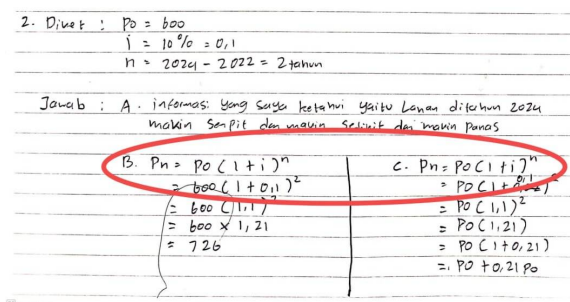 2. Diket : Po = 600
i = 10% = 0,1
n = 2024 - 2022 = 2 tahun
Jawab : A. informasi yang saya ketahui yaitu Lahan ditahun 2024
makin sempit dan makin sedikit dan makin panas
B. Pn = Po (1 + i)ⁿ
= 600 (1 + 0,1)²
= 600 (1,1)²
= 600 x 1,21
= 726
C. Pn = Po (1 + i)ⁿ
= Po (1 + 0,1)²
= Po (1,1)²
= Po (1,21)
= Po (1+0,21)
= Po + 0,21 Po